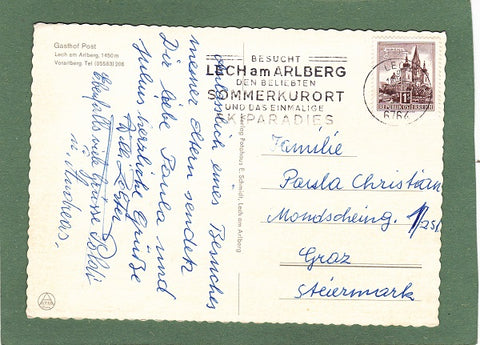 Gasthof Post
Lech am Arlberg, 1450 m
Vorarlberg Tel (05583) 208
BESUCHT
LECH am ARLBERG
DEN BELIEBTEN
SOMMERKURORT
UND DAS EINMALIGE
SKIPARADIES
LE
6764
REPUBLIK ÖSTERREICH
Anlässlich eines Besuches
meiner Eltern sendet
Dir liebe Paula und
Julius herzliche Grüße
Ebenfalls viele Grüsse
u. Andreas,
Verlag Fotohaus E. Schmidt, Lech am Arlberg
Familie
Paula Christian
Mondscheing.
Graz
Steiermark